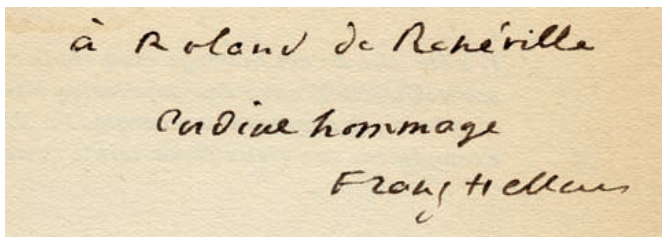 à Roland de Renéville
Cordial hommage
Franz Hellens